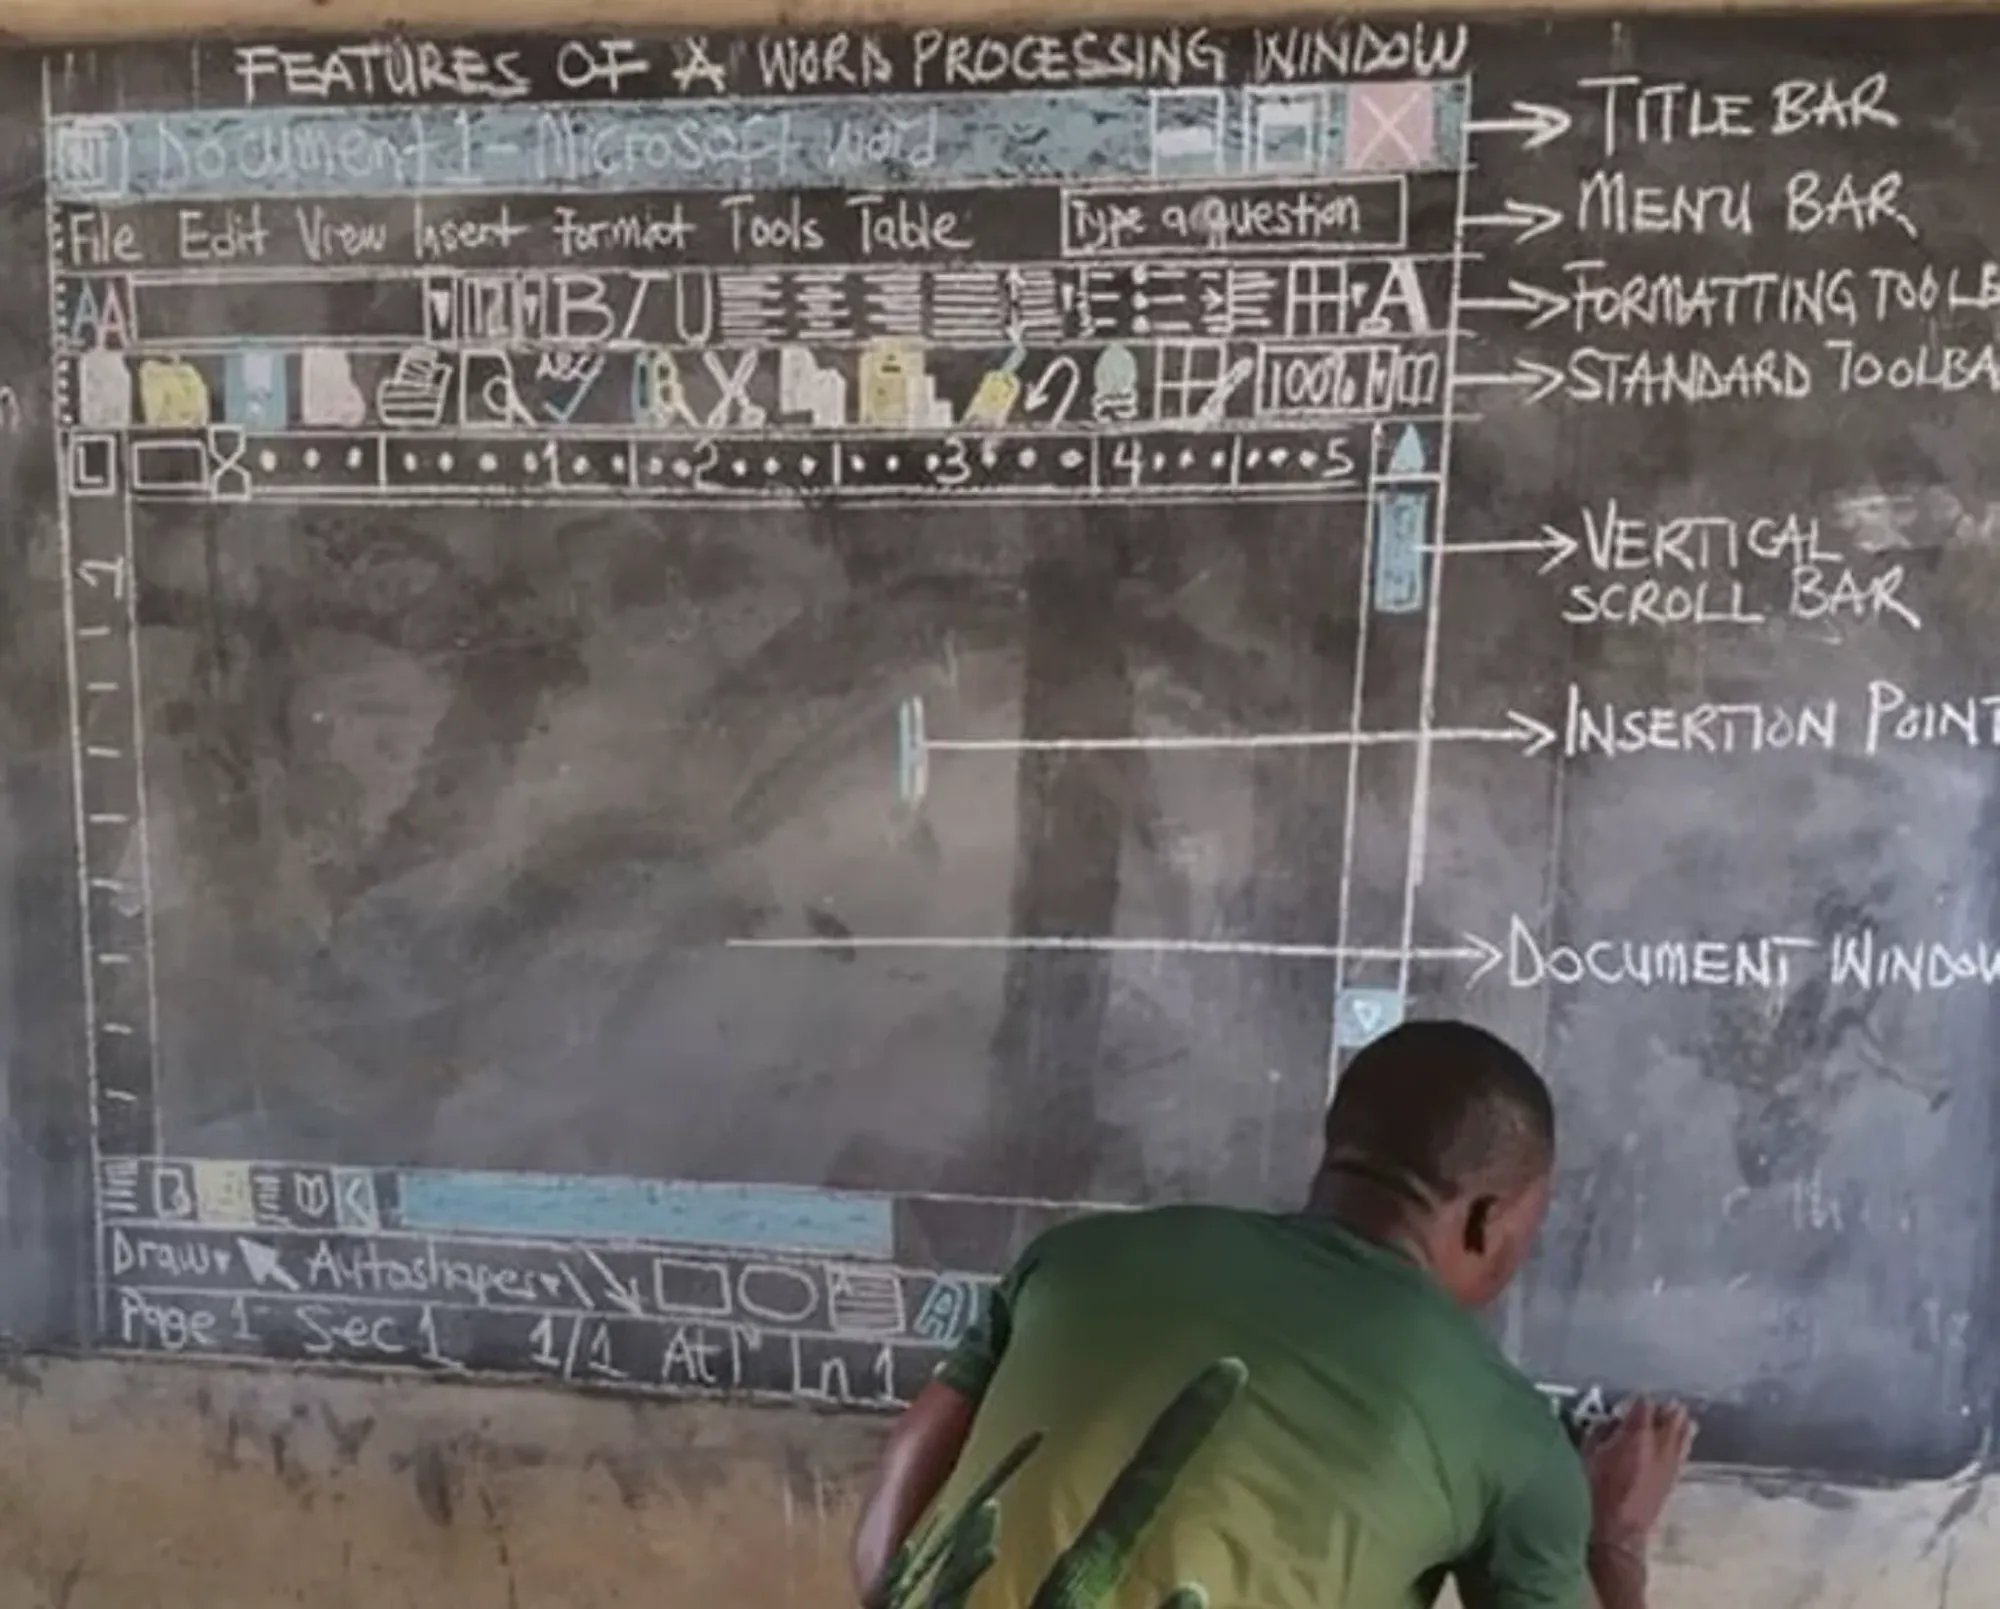 FEATURES OF A WORD PROCESSING WINDOW
Document 1 - Microsoft word
TITLE BAR
File Edit View Insert Format Tools Table
Type a question
MENU BAR
AA
12
B I U
A
FORMATTING TOOLB
ABC
100%
STANDARD TOOLBA
L
1 2 3 4 5
1
VERTICAL
SCROLL BAR
INSERTION POINT
DOCUMENT WINDOW
Draw
Autoshapes
A
Page 1 Sec 1 1/1 At 1" Ln 1
TA